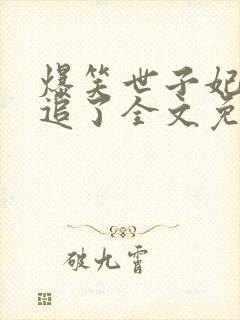 爆笑世子妃
追了全文免
破九霄